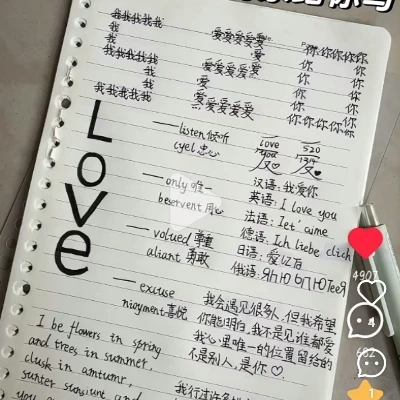 我我我我 爱爱爱爱爱 你你你你你
我 爱 你 你
我我我我 爱爱爱爱 你 你
我 爱 你 你
我我我我 爱爱爱爱爱 你你你你你
Love
listen 倾听
cyel 忠心
only 唯一
beservent 用心
valued 尊重
aliant 勇敢
excuse
nioyment 喜悦
love 520
you 1314
汉语:我爱你
英语:I love you
法语:Iet' aime
德语:Ich liebe clich
日语:爱してる
俄语:
我会遇见很多人,但我希望
你能明白,我不是见谁都爱
我心里唯一的位置留给的
不是别人,是你♡
I be flowers in spring
and trees in summer,
clusk in amtumr,
sunter sunsiunt and
我行过许多地
4907
4
682
1